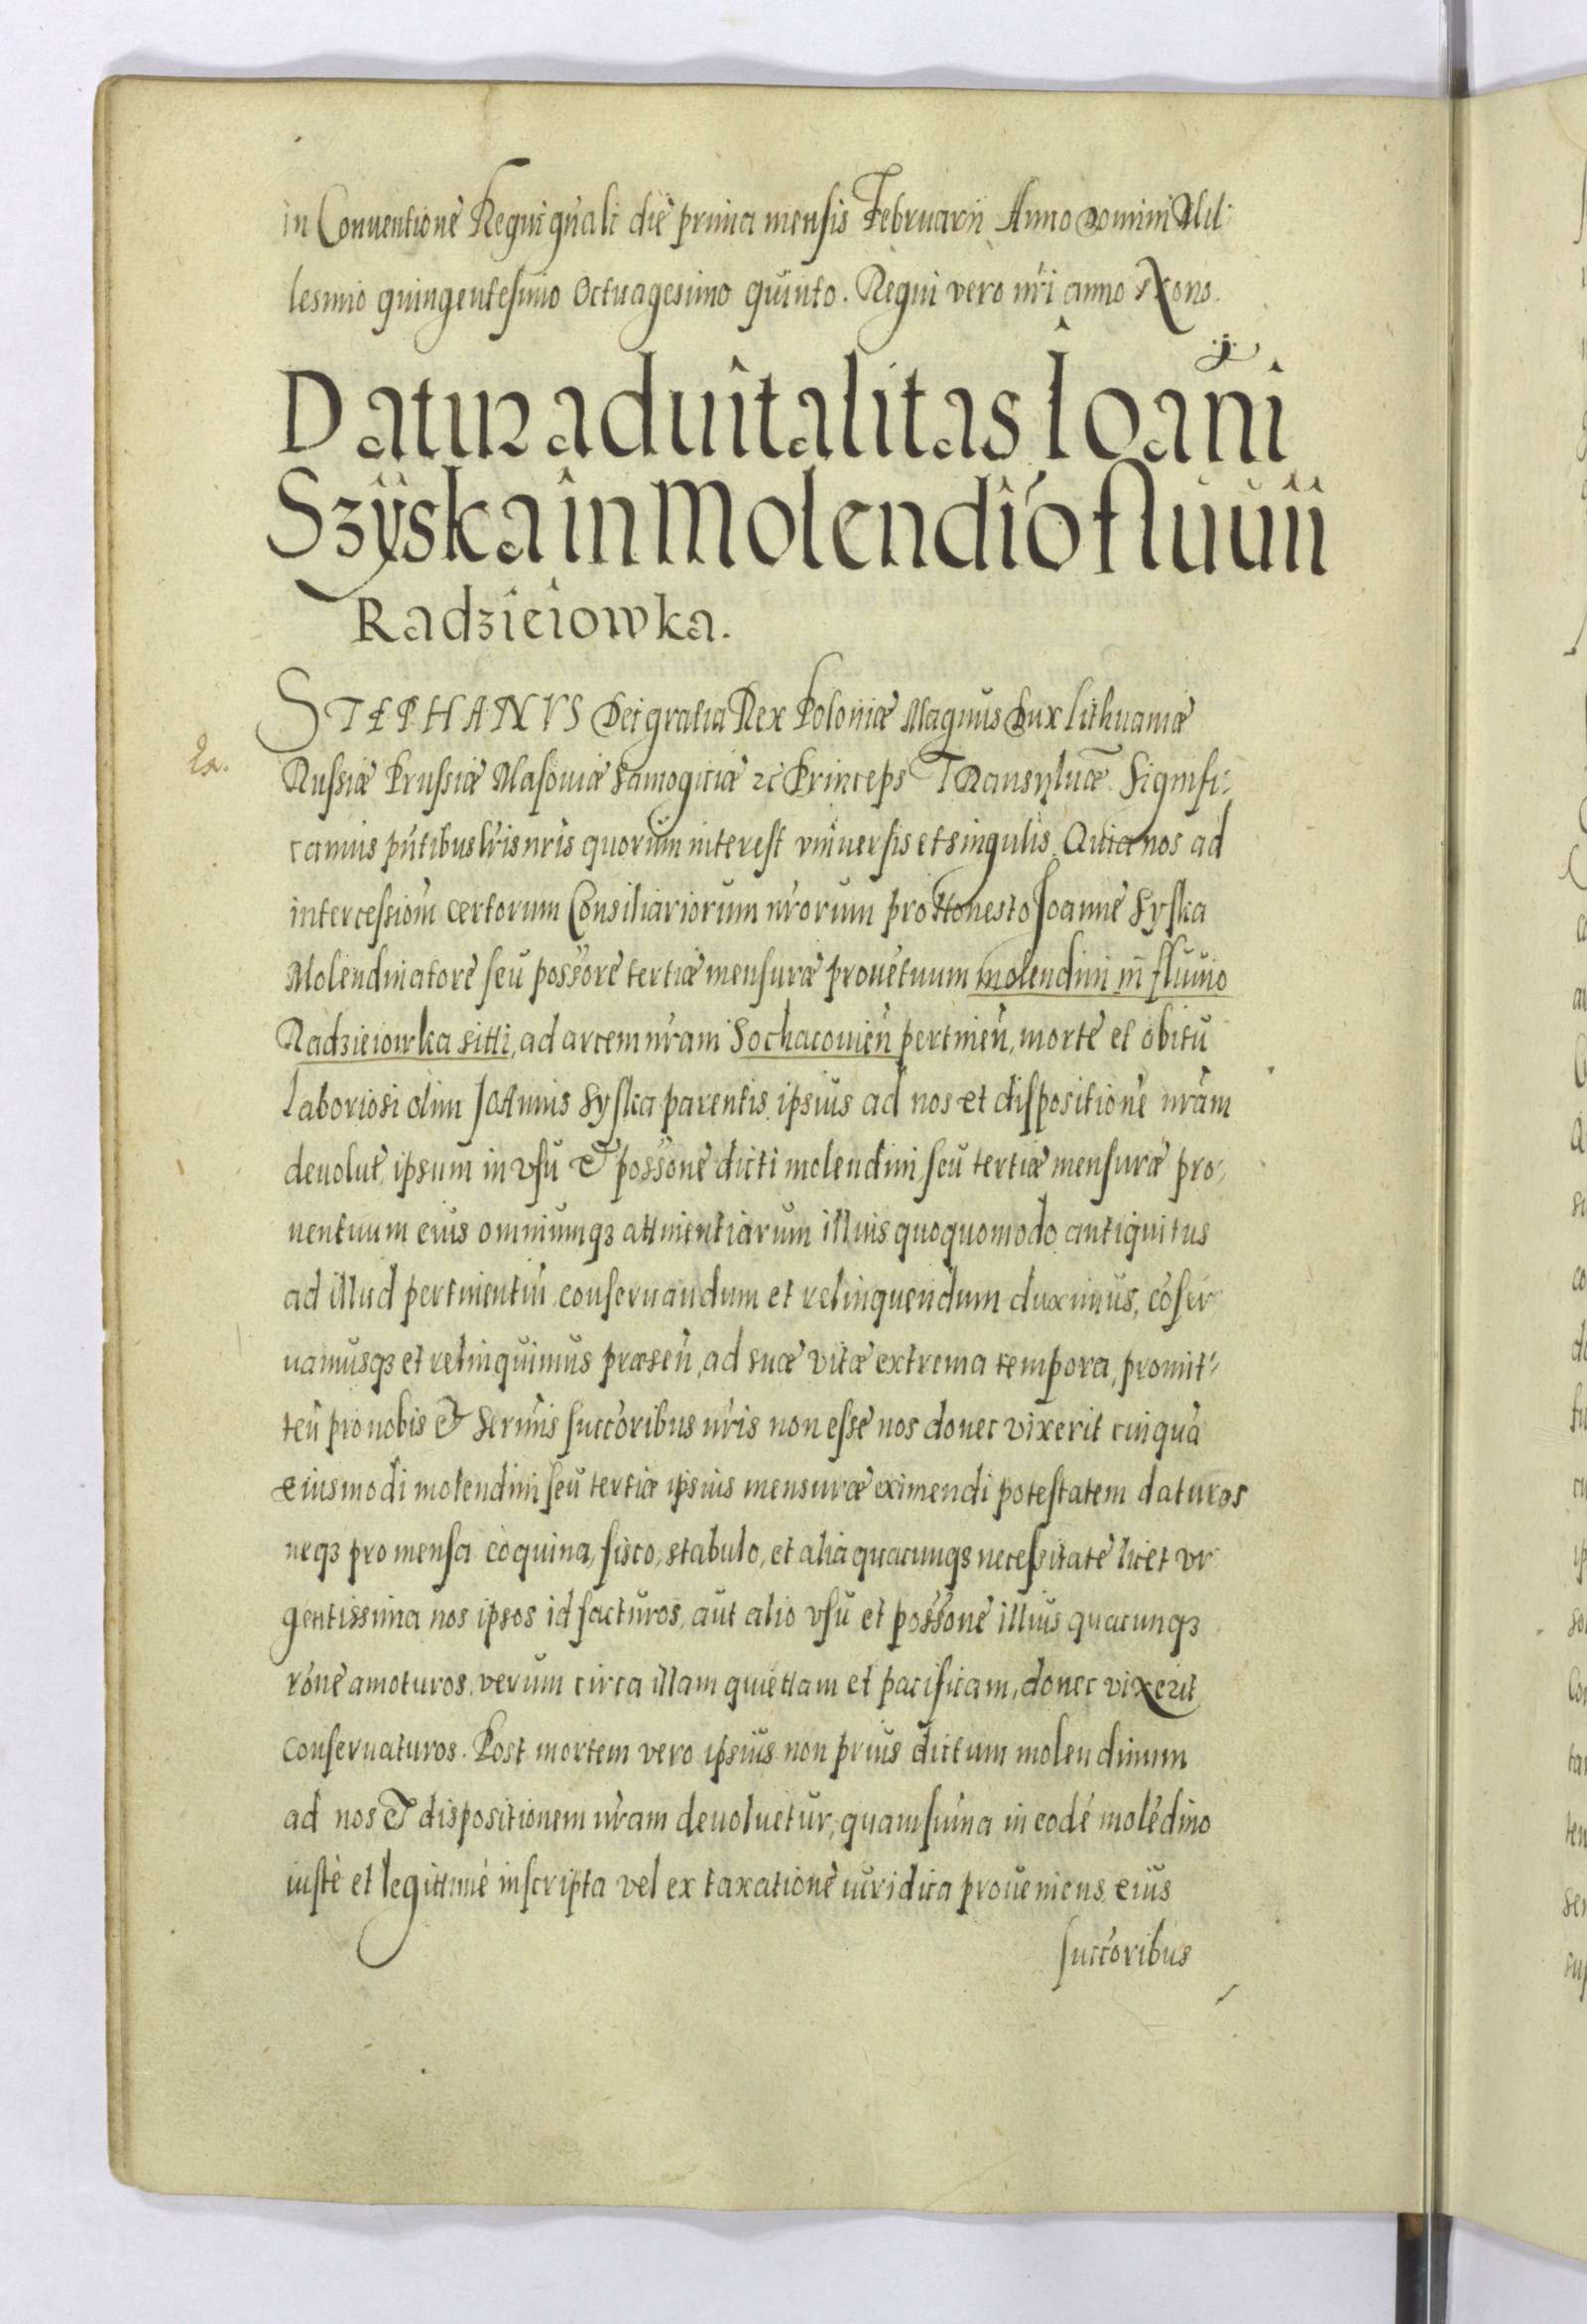 in Conuentione Regni gnali die prima mensis Februarii Anno Domini Mil
lesimo quingentesimo Octuagesimo quinto. Regni vero nri anno Nono.
Datur aduitalitas Ioani
Szÿska in Molendio fluuii
Radzieiowka.
STEPHANVS Dei gratia Rex Poloniæ Magnus Dux Lithuaniæ
Russiæ Prussiæ Masouiæ Samogitiæ Princeps Transyluæ. Signifi
camus pntibus lris nris quorum interest vniuersis et singulis. Quia nos ad
intercessiom certorum Consiliariorum nrorum pro Honesto Joanne Syska
Molendinatore seu possore tertiæ mensuræ prouetuum molendini in fluuio
Radzieiowka sitti, ad arcem nram Sochacouien pertinen, morte et obitu
laboriosi olim Joannis Syska parentis ipsius ad nos et dispositione nram
deuolut, ipsum in vsu & possone dicti molendini seu tertiæ mensuræ pro,
uentuum eius omniumqz attinentiarum illius quoquomodo antiquitus
ad illud pertinentiu conseruandum et relinquendum duximus, coser
uamusqz et relinquimus præsen, ad suæ vitæ extrema tempora, promit
ten pro nobis & Sermis succoribus nris non esse nos donec vixerit cuiqua
eiusmodi molendini seu tertiæ ipsius mensuræ eximendi potestatem daturos
neqz pro mensa coquina, fisco, stabulo, et alia quacunqz necessitate licet vr
gentissima nos ipsos id facturos, aut alio vsu et possone illius quacunqz
rone amoturos, verum circa illam quiettam et pacificam, donec vixerit
conseruaturos. Post mortem vero ipsius non prius dictum molendinum
ad nos & dispositionem nram deuoluetur, quam suma in eode moledino
iuste et legittime inscripta vel ex taxatione iuridica proueniens eius
succoribus